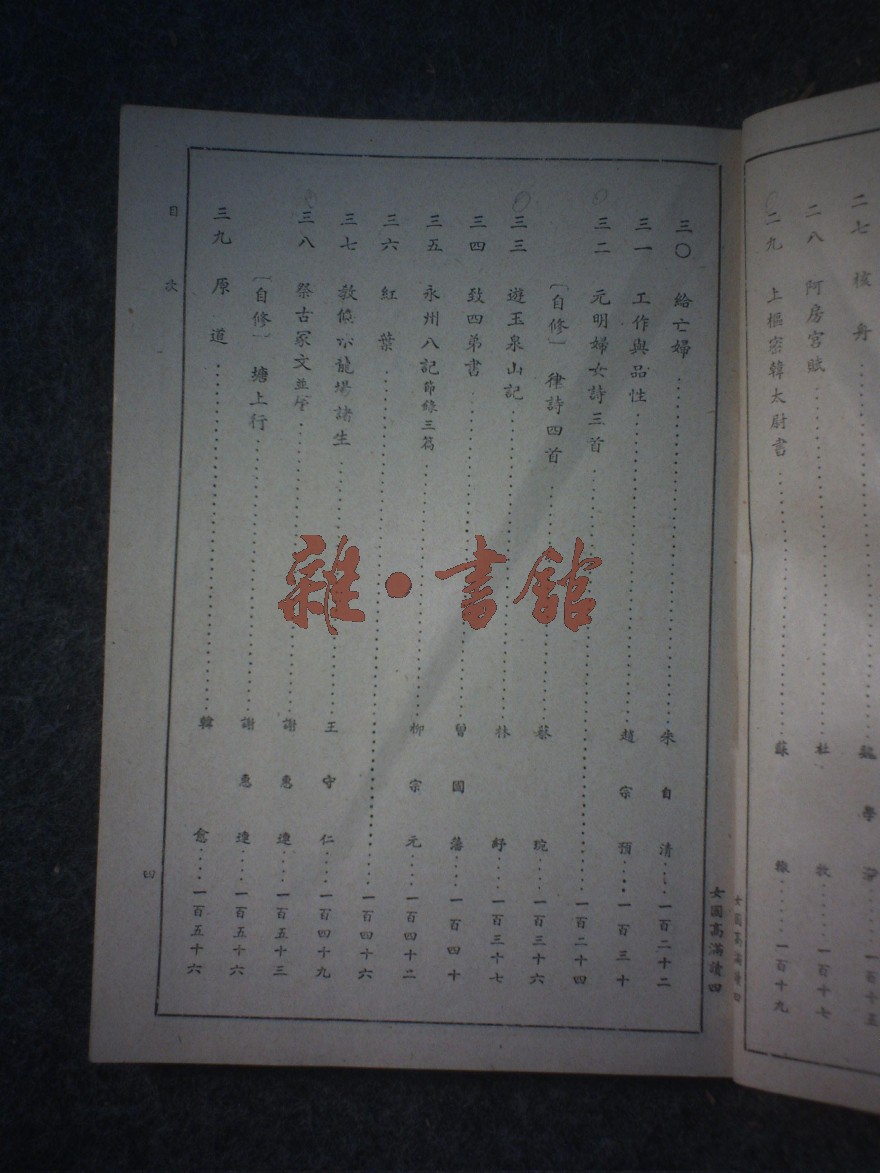 二七 核舟 魏學洢 一百十五
二八 阿房宮賦 杜牧 一百十七
二九 上樞密韓太尉書 蘇轍 一百十九
女國高滿讀四
女國高滿讀四
三〇 給亡婦 朱自清 一百二十二
三一 工作與品性 趙宗預 一百三十
三二 元明婦女詩三首 一百二十四
〔自修〕律詩四首 蔡琬 一百三十六
三三 遊玉泉山記 林紓 一百三十七
三四 致四弟書 曾國藩 一百四十
三五 永州八記節錄三篇 柳宗元 一百四十二
三六 紅葉 一百四十六
三七 敎條示龍場諸生 王守仁 一百四十九
三八 祭古冢文並序 謝惠連 一百五十三
〔自修〕塘上行 謝惠連 一百五十六
三九 原道 韓愈 一百五十六
目次
四
雜·書館